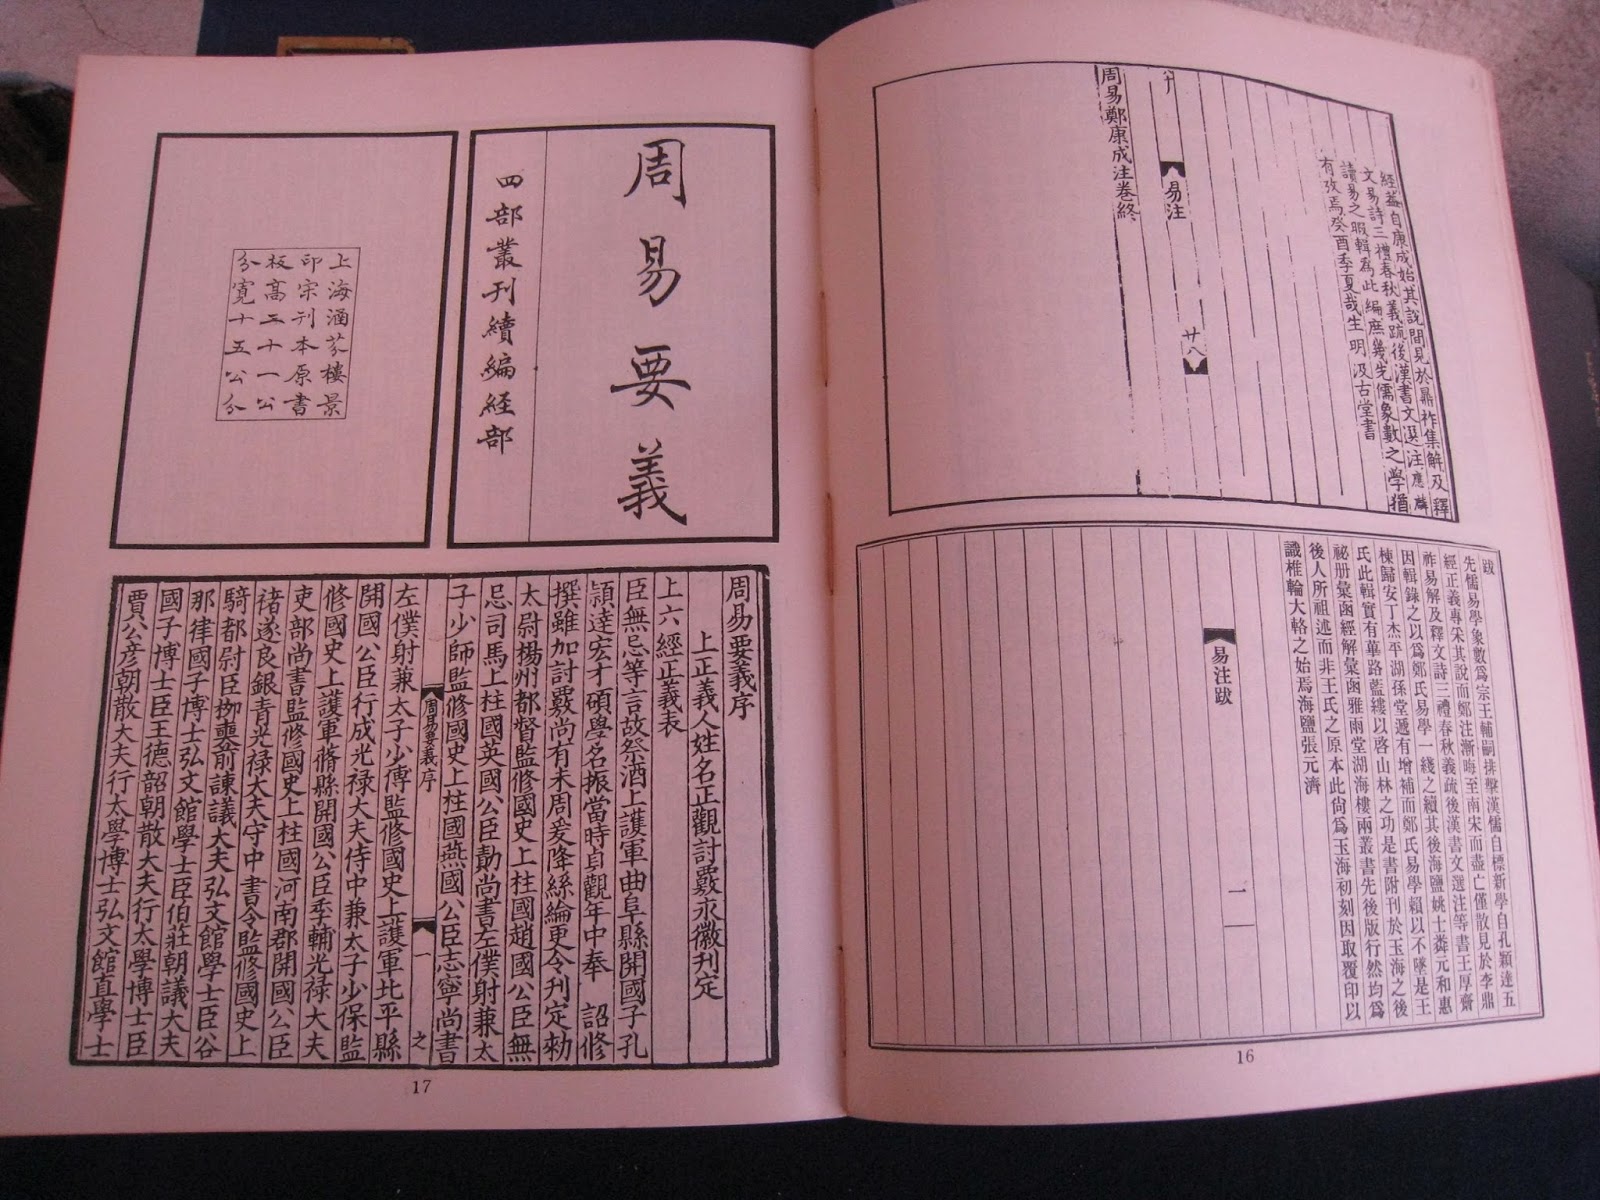 經蓋自康成始其說間見於鼎祚集解及釋
文易詩三禮春秋義疏後漢書文選注應麟
讀易之暇輯爲此編庶幾先儒象數之學猶
有攷焉癸酉季夏哉生明汲古堂書
易注
廿八
周易鄭康成注卷終
跋
先儒易學象數爲宗王輔嗣排擊漢儒自標新學自孔穎達五
經正義專宋其說而鄭注漸晦至南宋而盡亡僅散見於李鼎
祚易解及釋文詩三禮春秋義疏後漢書文選注等書王厚齋
因輯錄之以爲鄭氏易學一綫之續其後海鹽姚士粦元和惠
棟歸安丁杰平湖孫堂遞有增補而鄭氏易學賴以不墜是王
氏此輯實有蓽路藍縷以啓山林之功是書附刊於玉海之後
祕册彙函經解彙函雅雨堂湖海樓兩叢書先後版行然均爲
後人所祖述而非王氏之原本此尙爲玉海初刻因取覆印以
識椎輪大輅之始焉海鹽張元濟
易注跋
一
16
周易要義
四部叢刊續編經部
上海涵芬樓景
印宋刊本原書
板高二十一公
分寬十五公分
周易要義序
上正義人姓名正觀討覈永徽刊定
上六經正義表
臣無忌等言故祭酒上護軍曲阜縣開國子孔
穎達宏才碩學名振當時貞觀年中奉 詔修
撰雖加討覈尚有未周爰降絲綸更令刊定勑
太尉揚州都督監修國史上柱國趙國公臣無
忌司馬上柱國英國公臣勣尚書左僕射兼太
子少師監修國史上柱國燕國公臣志寧尚書
周易要義序
一
之
左僕射兼太子少傅監修國史上護軍北平縣
開國公臣行成光祿大夫侍中兼太子少保監
修國史上護軍蓨縣開國公臣季輔光祿大夫
吏部尚書監修國史上柱國河南郡開國公臣
褚遂良銀青光祿大夫守中書令監修國史上
騎都尉臣柳奭前諫議大夫弘文館學士臣谷
那律國子博士弘文館學士臣伯莊朝議大夫
國子博士臣王德韶朝散大夫行太學博士臣
賈公彥朝散大夫行太學博士弘文館直學士
17